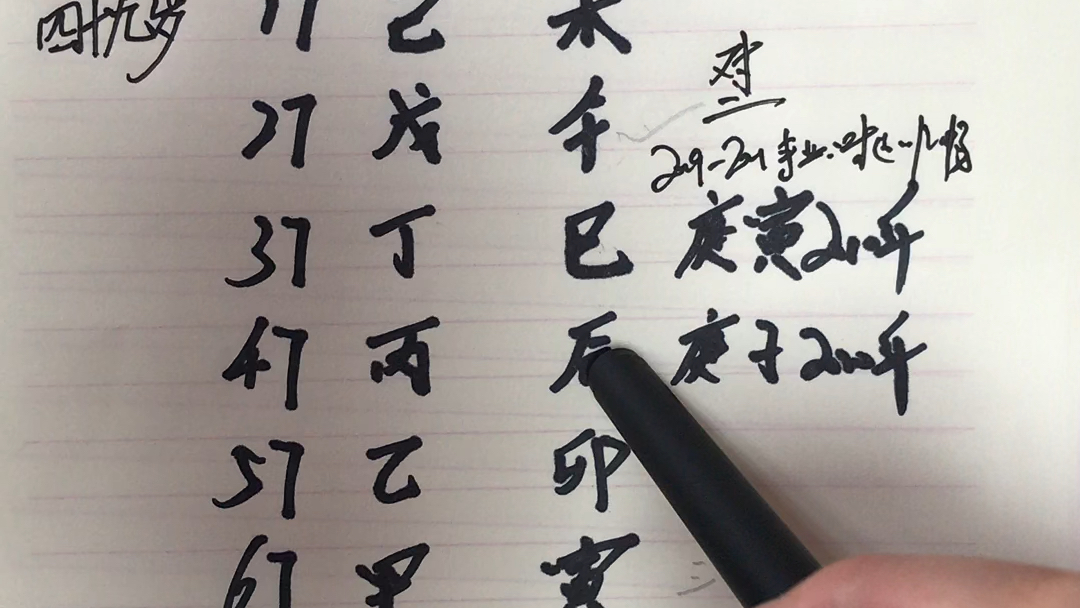 四十九岁
17 己 未
对
27 戊 午
2009-2011事业
37 丁 巳 庚寅2010年
47 丙 辰 庚子2020年
57 乙 卯
67 甲 寅